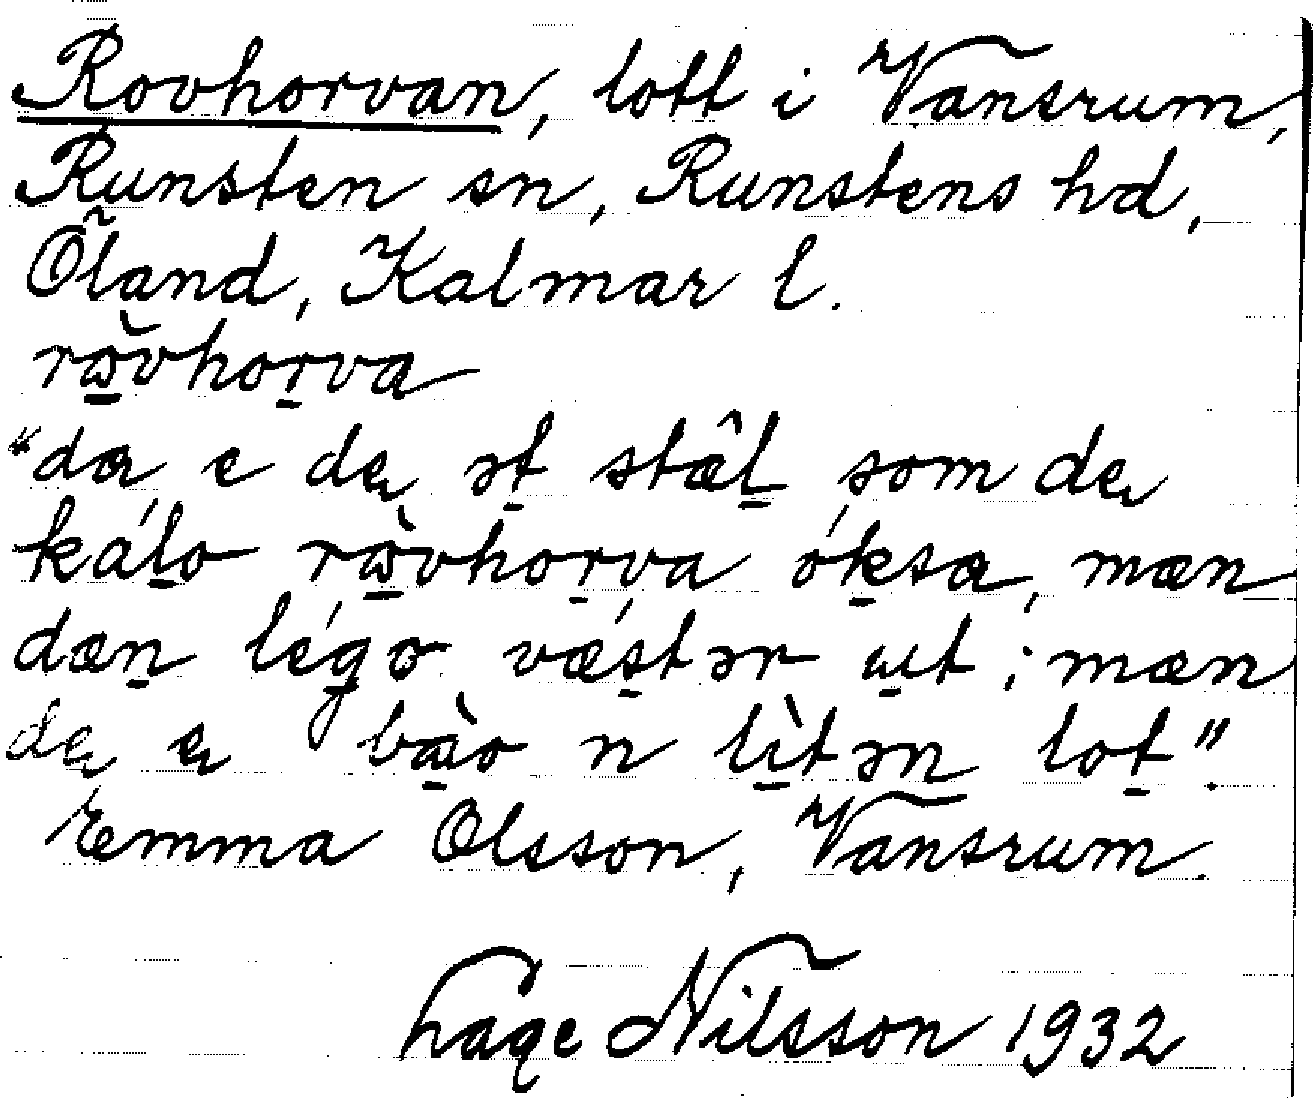 Rovhorvan, lott i Vanserum,
Runsten sn, Runstens hd,
Öland, Kalmar l.
rɷ̀vhorva
"dæ, e de ət stæ̂l som de
kálo rɷ̀vhorva óksa, mæn
dæn légər vǽstər ut; mæn
de e bàᴓ n lìtən lot".
Emma Olsson, Vanserum.
Lage Nilsson 1932